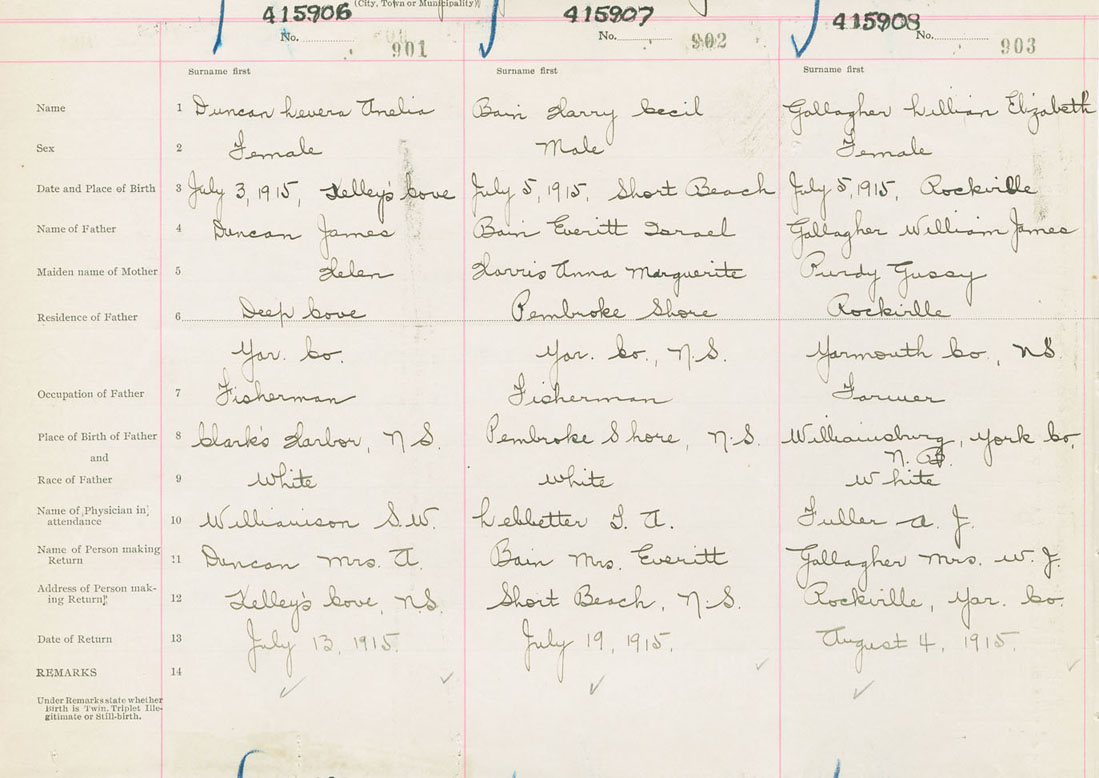 (City, Town or Municipality)
415906 415907 415908
No. 901 No. 902 No. 903
Surname first Surname first Surname first
Name 1 Duncan Levera Amelia Bain Harry Cecil Gallagher Lillian Elizabeth
Sex 2 Female Male Female
Date and Place of Birth 3 July 3, 1915, Kelley's Cove July 5, 1915, Short Beach July 5, 1915, Rockville
Name of Father 4 Duncan James Bain Everitt Israel Gallagher William James
Maiden name of Mother 5 Helen Harris Anna Marguerite Purdy Gussy
Residence of Father 6 Deep Cove Pembroke Shore Rockville
Yar. Co. Yar. Co., N.S. Yarmouth Co., NS.
Occupation of Father 7 Fisherman Fisherman Farmer
Place of Birth of Father 8 Clark's Harbor, N.S. Pembroke Shore, N.S. Williamsburg, York Co,
and N.B.
Race of Father 9 White White White
Name of Physician in attendance 10 Williamson S.W. Lebbetter T. A. Fuller A. J.
Name of Person making Return 11 Duncan Mrs. A. Bain Mrs. Everitt Gallagher Mrs. W. J.
Address of Person making Return 12 Kelley's Cove, N.S. Short Beach, N.S. Rockville, Yar. Co.
Date of Return 13 July 13, 1915. July 19, 1915. August 4, 1915.
REMARKS 14
Under Remarks state whether
Birth is Twin, Triplet Ille-
gitimate or Still-birth.